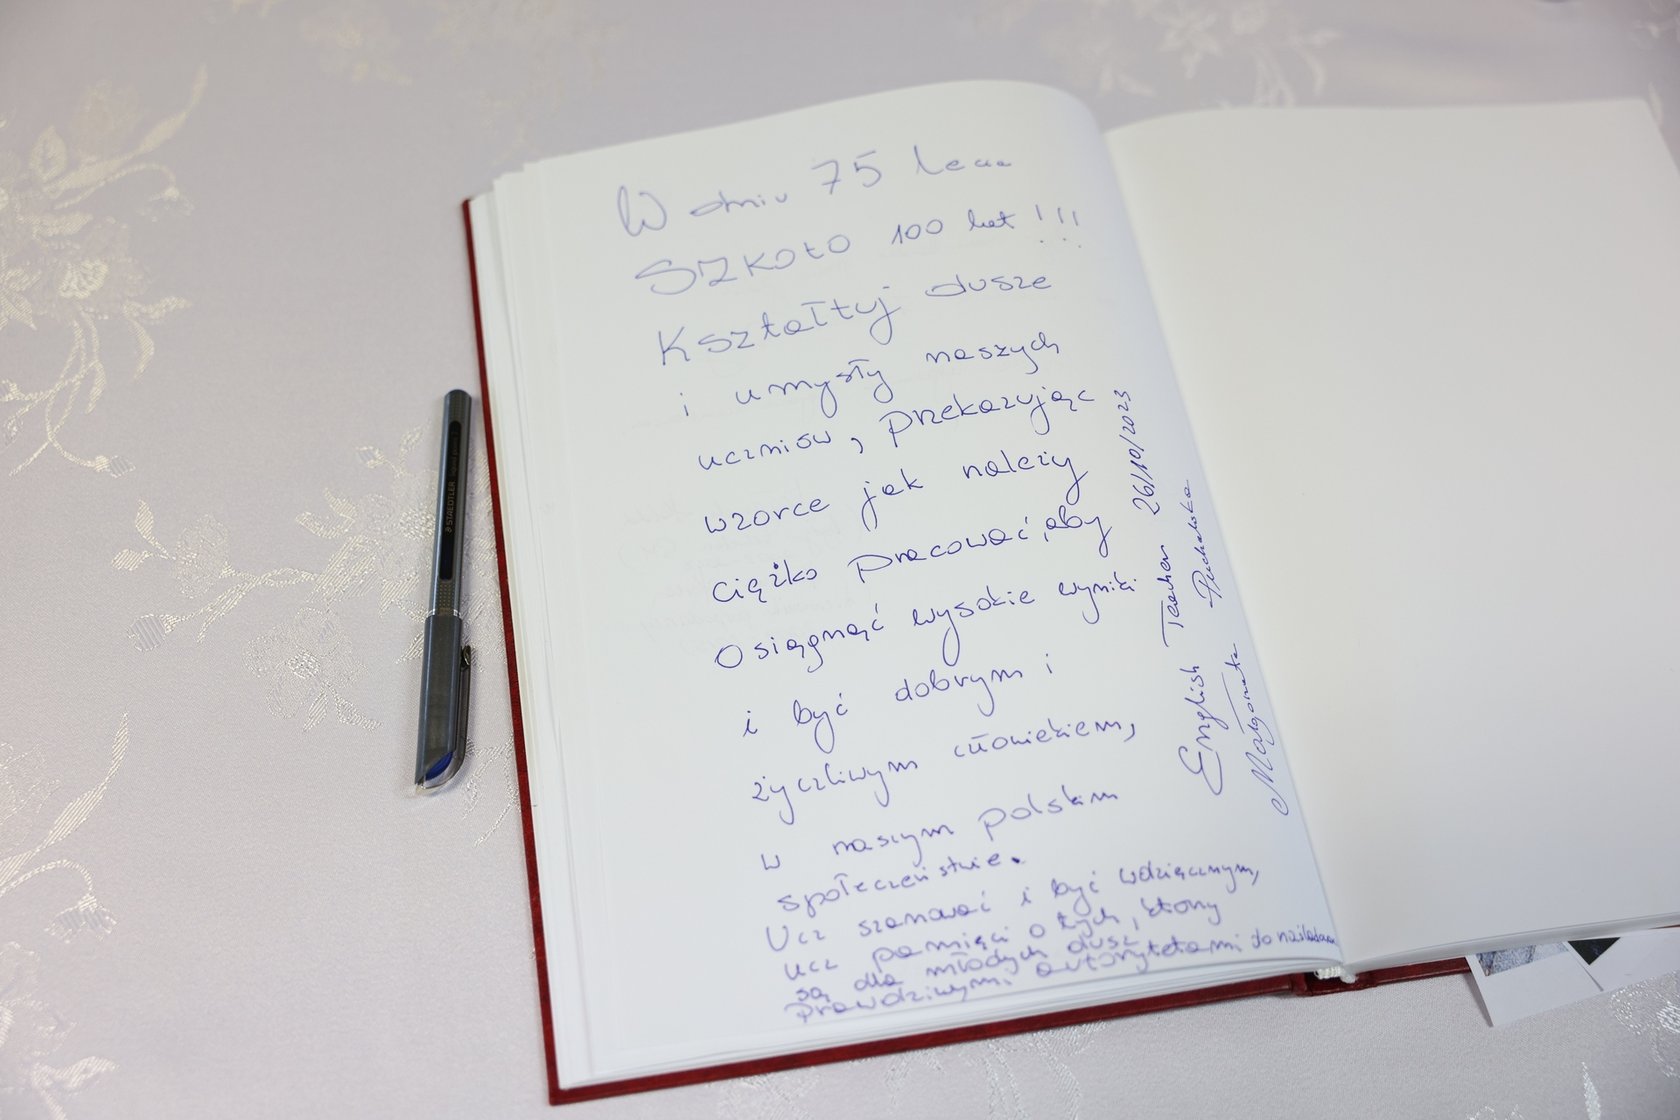 W dniu 75 lecia
SZKOŁO 100 lat !!!
Kształtuj dusze
i umysły naszych
uczniów, przekazując
wzorce jak należy
ciężko pracować, aby
Osiągnąć wysokie wyniki
i być dobrym i
życzliwym człowiekiem,
w naszym polskim
społeczeństwie.
Ucz szanować i być wdzięcznym,
ucz pamięci o tych, którzy
są dla młodych dusz
prawdziwymi autorytetami do naśladowania
English Teacher 26/10/2023
Małgorzata Puchalska
STAEDTLER